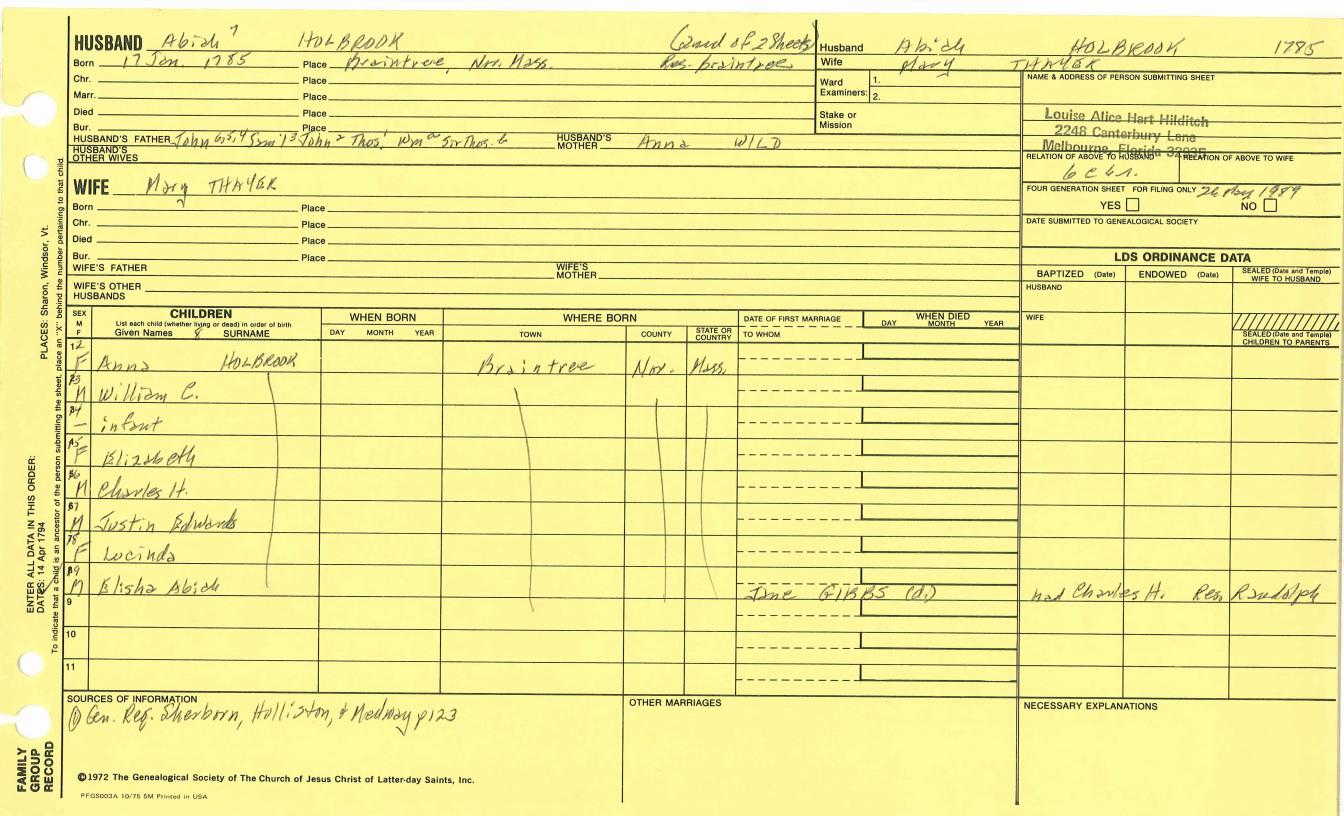 HUSBAND Abiah 7 HOLBROOK (2nd of 2 Sheets)
Born 17 Jan. 1785 Place Braintree, Nor. Mass. Res. Braintree
Chr. Place
Marr. Place
Died Place
Bur. Place
HUSBAND'S FATHER John 6,5,4 Sam'l 3 John 2 Thos. 1 Wm a Sir Thos. b HUSBAND'S MOTHER Anna WILD
HUSBAND'S OTHER WIVES
Husband Abiah HOLBROOK 1785
Wife Mary THAYER
Ward Examiners: 1.
2.
Stake or Mission
NAME & ADDRESS OF PERSON SUBMITTING SHEET
Louise Alice Hart Hilditch
2248 Canterbury Lane
Melbourne, Florida 32935
RELATION OF ABOVE TO HUSBAND RELATION OF ABOVE TO WIFE
6 c 6 r.
FOUR GENERATION SHEET FOR FILING ONLY 26 May 1989
YES NO
DATE SUBMITTED TO GENEALOGICAL SOCIETY
WIFE Mary THAYER
Born Place
Chr. Place
Died Place
Bur. Place
WIFE'S FATHER WIFE'S MOTHER
WIFE'S OTHER HUSBANDS
LDS ORDINANCE DATA
BAPTIZED (Date) ENDOWED (Date) SEALED (Date and Temple) WIFE TO HUSBAND
HUSBAND
WIFE
SEALED (Date and Temple) CHILDREN TO PARENTS
SEX M F
CHILDREN
List each child (whether living or dead) in order of birth
Given Names 8 SURNAME
WHEN BORN
DAY MONTH YEAR
WHERE BORN
TOWN COUNTY STATE OR COUNTRY
DATE OF FIRST MARRIAGE
TO WHOM
WHEN DIED
DAY MONTH YEAR
12 F Anna HOLBROOK Braintree Nor. Mass.
3 M William C.
4 — infant
5 F Elizabeth
6 M Charles H.
7 M Justin Edwards
8 F Lucinda
9 M Elisha Abiah Jane GIBBS (d.) had Charles H. Res. Randolph
9
10
11
SOURCES OF INFORMATION
① Gen. Reg. Sherborn, Holliston, & Medway p123
OTHER MARRIAGES
NECESSARY EXPLANATIONS
©1972 The Genealogical Society of The Church of Jesus Christ of Latter-day Saints, Inc.
PFGS003A 10/75 5M Printed in USA
FAMILY GROUP RECORD
ENTER ALL DATA IN THIS ORDER:
DATES: 14 Apr 1794
PLACES: Sharon, Windsor, Vt.
To indicate that a child is an ancestor of the person submitting the sheet, place an "X" behind the number pertaining to that child.